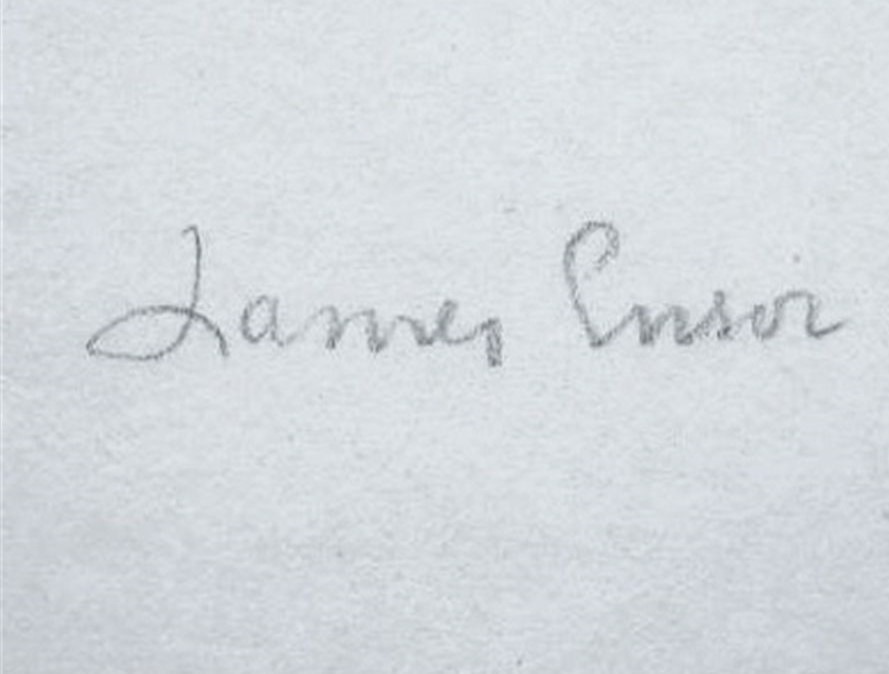 James Ensor